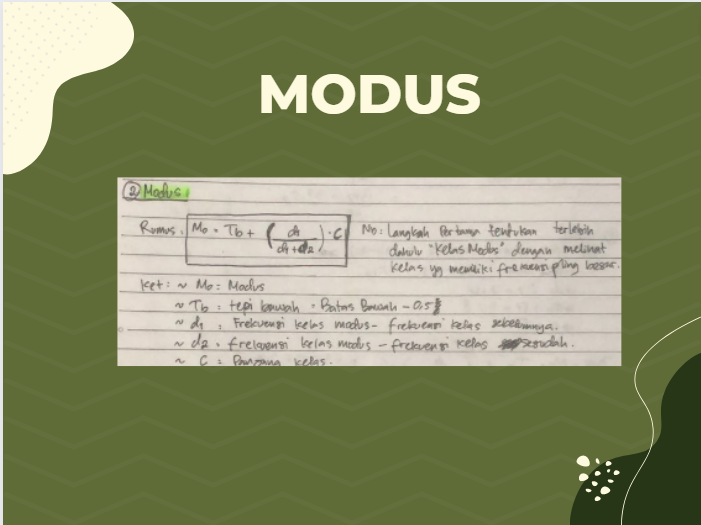 MODUS
② Modus :
Rumus : Mo = Tb + (d1 / d1 + d2) . C
Nb : Langkah Pertama tentukan terlebih
dahulu "Kelas Modus" dengan melihat
kelas yg memiliki frekuensi pling besar.
Ket : ~ Mo = Modus
~ Tb = tepi bawah = Batas Bawah - 0,5
~ d1 = Frekuensi kelas modus - frekuensi kelas sebelumnya.
~ d2 = frekuensi kelas modus - frekuensi kelas sesudah.
~ C = Panjang kelas.